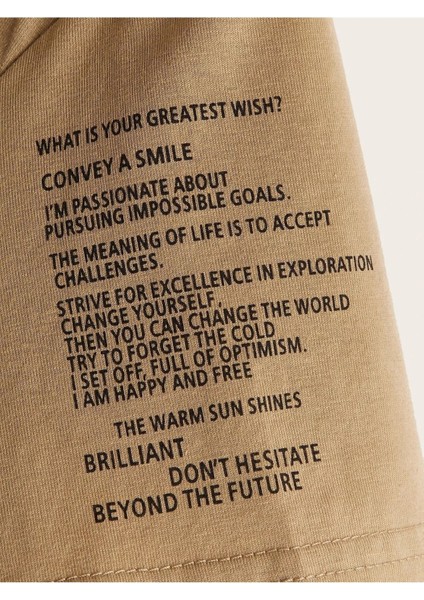 WHAT IS YOUR GREATEST WISH?
CONVEY A SMILE
I'M PASSIONATE ABOUT
PURSUING IMPOSSIBLE GOALS.
THE MEANING OF LIFE IS TO ACCEPT
CHALLENGES.
STRIVE FOR EXCELLENCE IN EXPLORATION
CHANGE YOURSELF,
THEN YOU CAN CHANGE THE WORLD
TRY TO FORGET THE COLD
I SET OFF, FULL OF OPTIMISM.
I AM HAPPY AND FREE
THE WARM SUN SHINES
BRILLIANT
DON'T HESITATE
BEYOND THE FUTURE